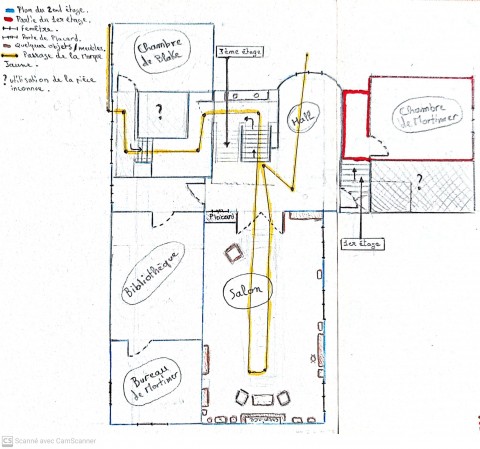 Plan du 2ond étage.
Partie du 1er étage.
Fenêtre.
Porte de Placard.
Quelques objets/meubles.
Passage de la Marque
Jaune.
? utilisation de la pièce
inconnue.
Chambre
de Blake
3ème étage
?
Hall
Chambre
de Mortimer
?
1er étage
Placard
Bibliothèque
Salon
Bureau
de Mortimer
CS Scanné avec CamScanner